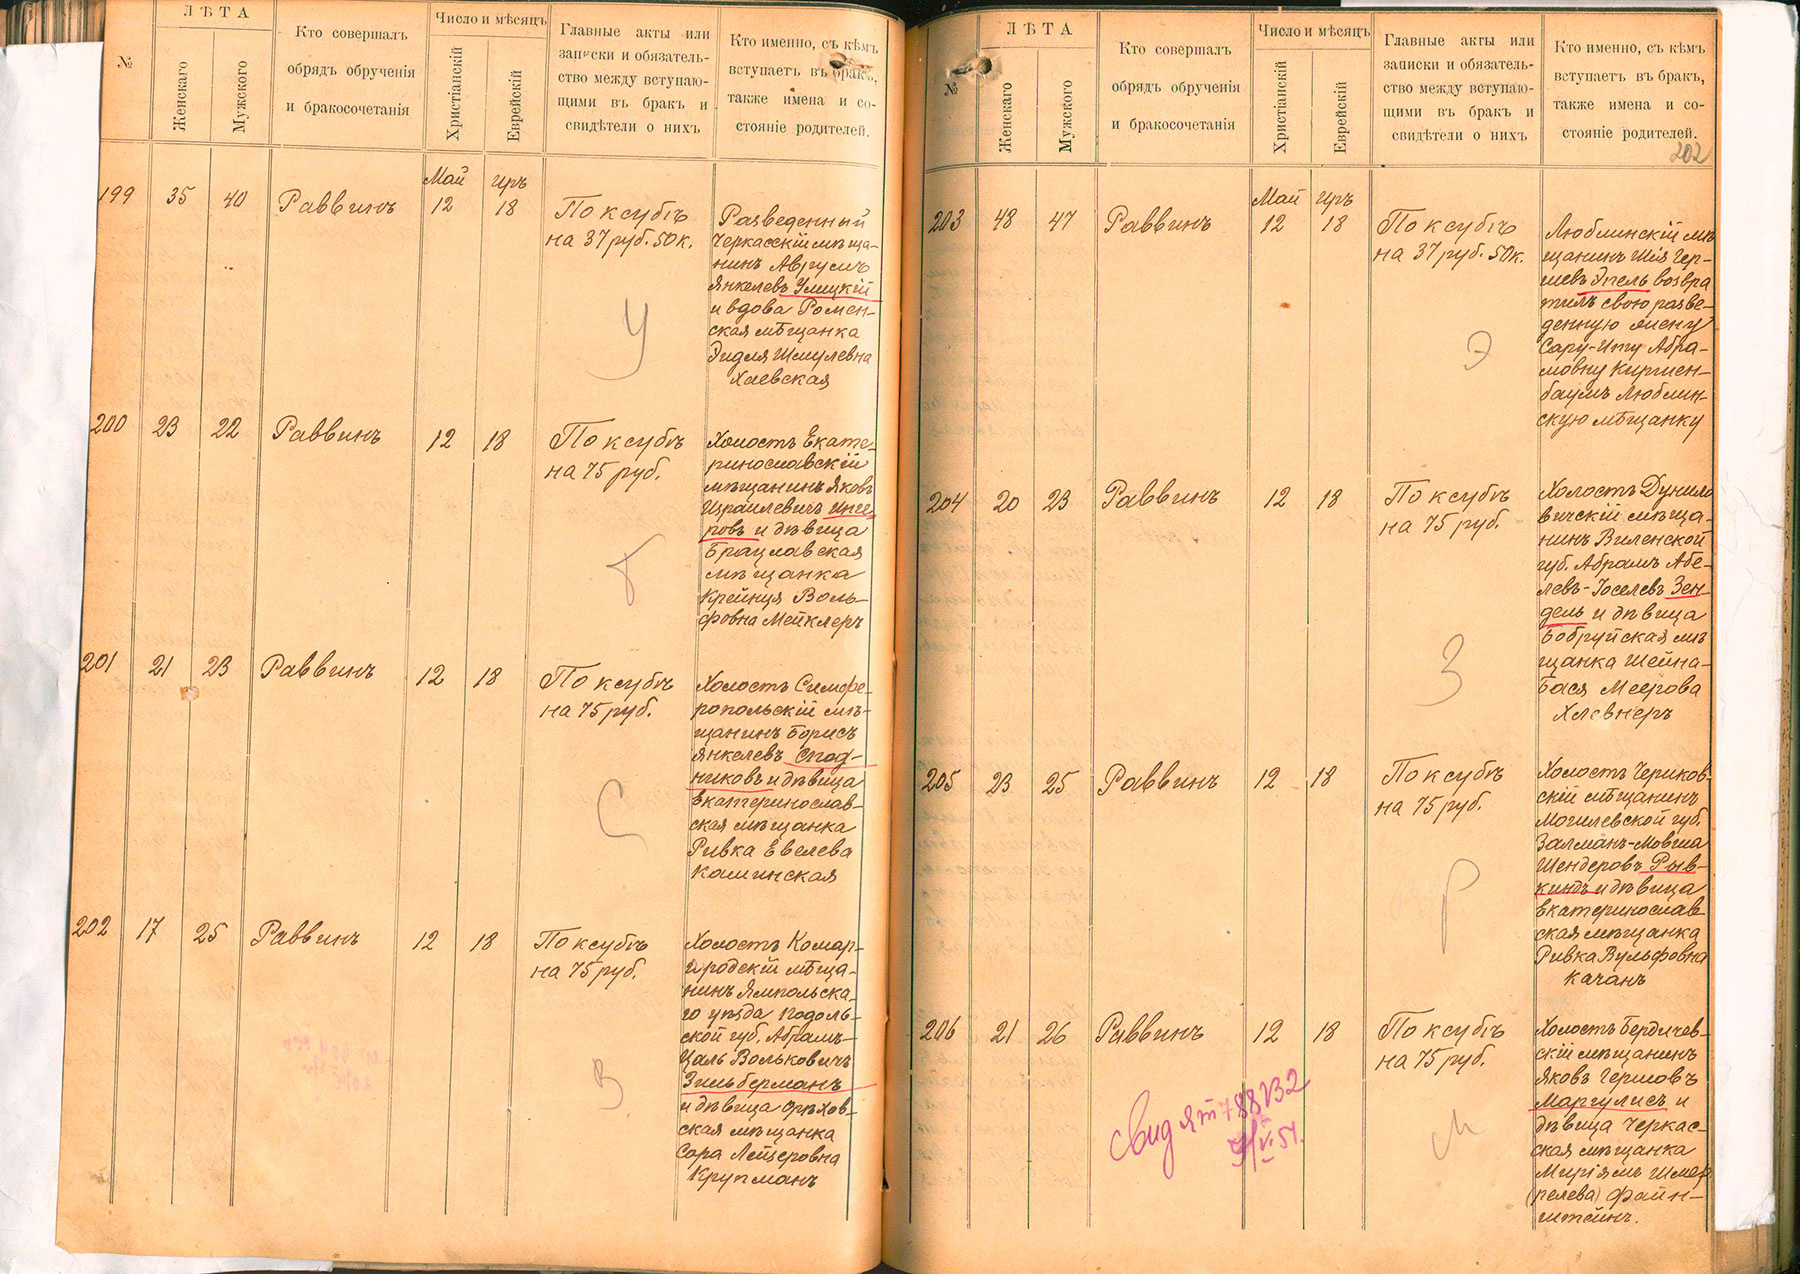 №
ЛѢТА
Женскаго
Мужского
Кто совершалъ
обрядъ обрученія
и бракосочетанія
Число и мѣсяцъ
Христіанскій
Еврейскій
Главные акты или
записки и обязатель-
ство между вступаю-
щими въ бракъ и
свидѣтели о нихъ
Кто именно, съ кѣмъ
вступаетъ въ бракъ,
также имена и со-
стояніе родителей.
Май Иръ
199 35 40 Раввинъ 12 18
По ксубѣ
на 37 руб. 50 к.
Разведенный
Черкасскій мѣща-
нинъ Аврумъ
Янкелевъ Улицкій
и вдова Ромен-
ская мѣщанка
Эидля Шмулевна
Хаевская
У
200 23 22 Раввинъ 12 18
По ксубѣ
на 75 руб.
Холостъ Екате-
ринославскій
мѣщанинъ Яковъ
Израилевичъ
ровъ и дѣвица
Брацлавская
мѣщанка
Крейнця Воль-
фовна Мейклеръ
201 21 23 Раввинъ 12 18
По ксубѣ
на 75 руб.
Холостъ Симфе-
ропольскій мѣ-
щанинъ Борисъ
Янкелевъ Спод-
никовъ и дѣвица
Екатеринослав-
ская мѣщанка
Ривка Евелева
Кашинская
С
202 17 25 Раввинъ 12 18
По ксубѣ
на 75 руб.
Холостъ Комар-
городскій мѣща-
нинъ Ямпольска-
го уѣзда Подоль-
ской губ. Абрамъ-
Цаль Вольковичъ
Зильберманъ
и дѣвица Орѣхов-
ская мѣщанка
Сора Лейзеровна
Крупманъ
З
№
ЛѢТА
Женскаго
Мужского
Кто совершалъ
обрядъ обрученія
и бракосочетанія
Число и мѣсяцъ
Христіанскій
Еврейскій
Главные акты или
записки и обязатель-
ство между вступаю-
щими въ бракъ и
свидѣтели о нихъ
Кто именно, съ кѣмъ
вступаетъ въ бракъ,
также имена и со-
стояніе родителей.
202
Май Иръ
203 48 47 Раввинъ 12 18
По ксубѣ
на 37 руб. 50 к.
Люблинскій мѣ
щанинъ Шія Гер-
шевъ Эпель возвра
тилъ свою разве-
денную жену
Сару-Иту Абра-
мовну Киршен-
баумъ Люблин-
скую мѣщанку
Э
204 20 23 Раввинъ 12 18
По ксубѣ
на 75 руб.
Холостъ Дунило
вичскій мѣща-
нинъ Виленской
губ. Абрамъ Абе-
левъ-Іоселевъ Зен-
дель и дѣвица
Бобруйская мѣ
щанка Шейна-
Бася Меерова
Хлевнеръ
З
205 23 25 Раввинъ 12 18
По ксубѣ
на 75 руб.
Холостъ Чериков-
скій мѣщанинъ
Могилевской губ.
Залманъ-Мовша
Шендеровъ Рыв-
киндъ и дѣвица
Екатеринослав
ская мѣщанка
Ривка Вульфовна
Качанъ
Р
206 21 26 Раввинъ 12 18
По ксубѣ
на 75 руб.
Холостъ Бердичев-
скій мѣщанинъ
Яковъ Гершовъ
Маргулисъ и
дѣвица Черкас-
ская мѣщанка
Миріямъ Шмер
(релева) Файн-
штейнъ.
М